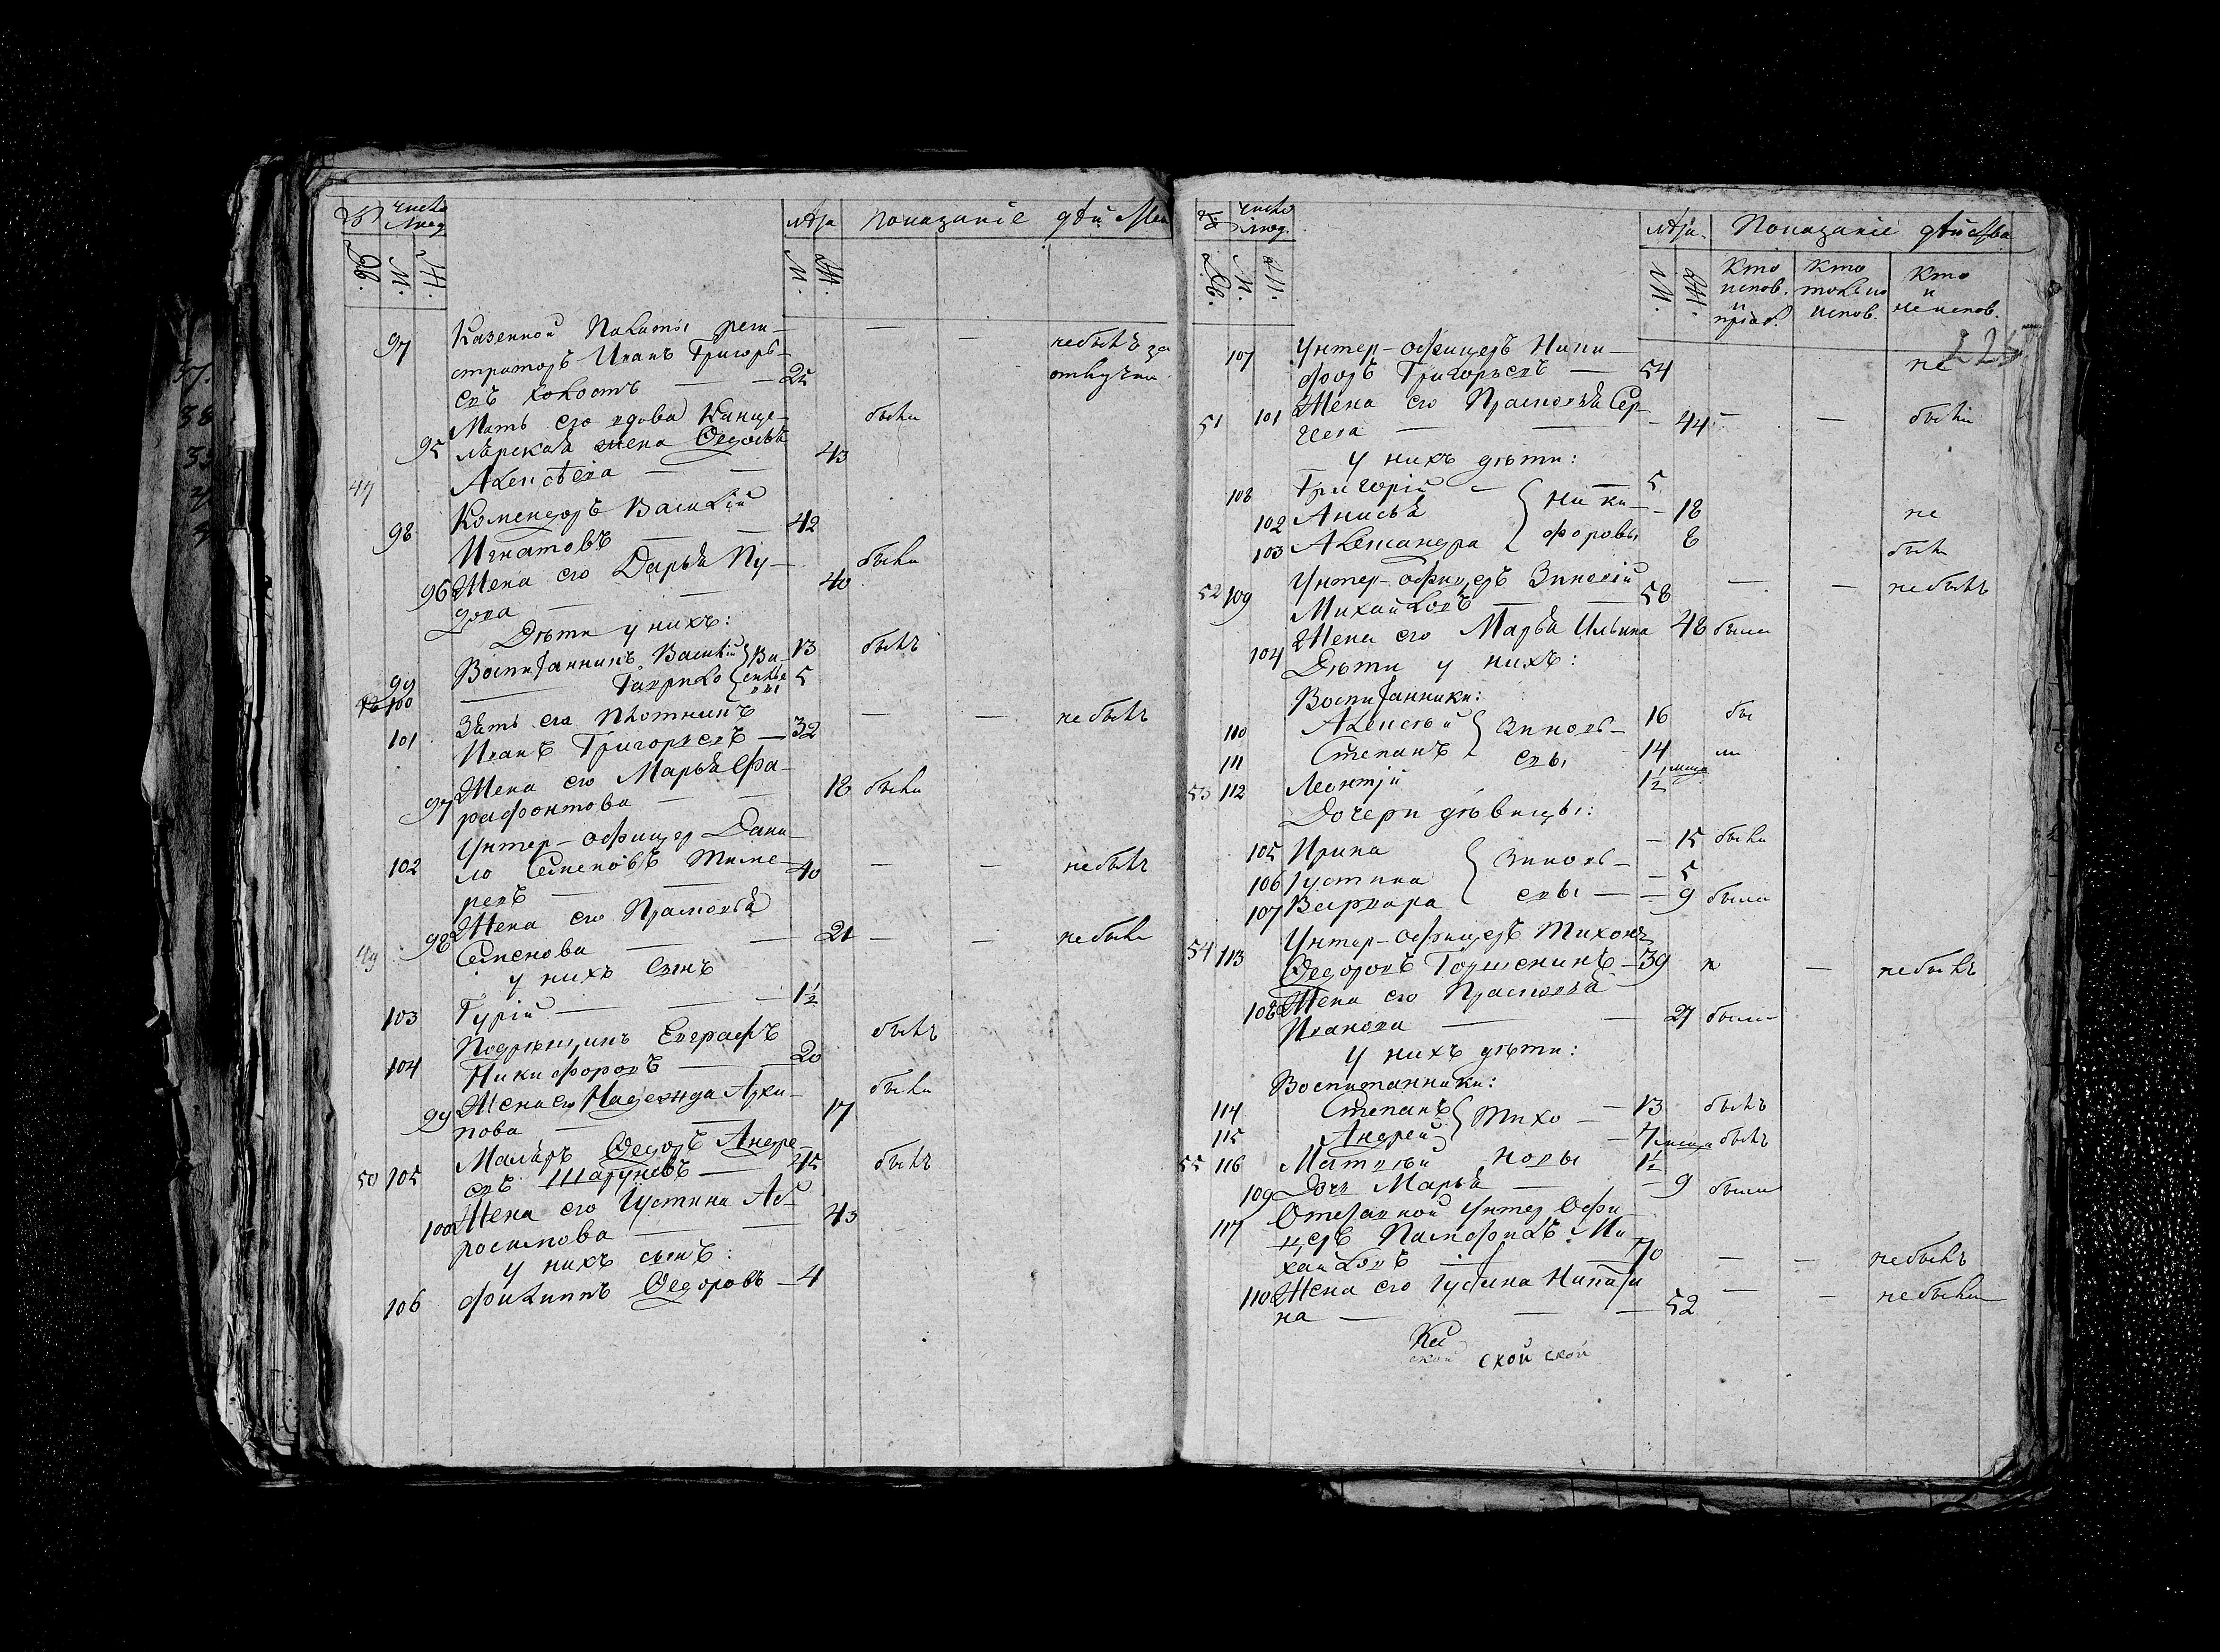 Число людъ
Лѣта
Показаніе дѣйства
Дв.
М.
Ж.
М.
Ж.
97 Казенной Палаты реги-
страторъ Иванъ Григорь-
евъ холостъ — 25 — — не былъ за
отлучки
Мать его вдова Канце-
95 лярская жена Ѳедосья
47 Алексѣева — — 43 были
Василій
98 Игнатовъ — 42
96 Жена его Дарья Пу-
дова — — 40 были
Дѣти у нихъ:
99 Воспитанникъ Василій } Ва- 13 былъ
100 — Гаврило } силье вы 5
Зять его плотникъ
101 Иванъ Григорьевъ — 32 — — не былъ
Жена его Марья
97 — — 18 были
Унтер-офицер Дани
102 ло Семеновъ
— — 40 — — не былъ
98 Жена его Прасковья
49 Семенова — — 21 — — не были
у нихъ сынъ
103 Гурій — — 1½
Евграфъ
104 Никифоровъ — 20 былъ
99 Жена его Надежда Архи-
пова — — 17 были
Маляръ Ѳедоръ Андре-
50 105 евъ Шаруновъ — 45 былъ
100 Жена его Іустина Аб-
росимова — — 43
у нихъ сынъ:
106 Филиппъ Ѳедоровъ — 4
Число люд.
Лѣта.
Показаніе дѣйства
Дв.
М.
Ж.
М.
Ж.
Кто испов. и приоб.
Кто только испов.
Кто и не испов.
107 Унтер-офицеръ Ники-
форъ Григорьевъ — 54 не
51 101 Жена его Прасковья Сер-
геева — — 44 — — были
у нихъ дѣти:
108 Григорій — 5
102 Анисья { Ники- 18 не
103 Александра { форовы 8 были
52 109 Унтер-офицеръ Зиновій
Михайловъ — — 58 — — не былъ
104 Жена его Марья Ильина 48 была
Дѣти у нихъ:
Воспитанники:
110 Алексѣй { Зиновь- 16 бы
111 Степанъ { евы 14 ли
53 112 Леонтій 1½
Дочери дѣвицы:
105 Ирина { Зиновь- — 15 были
106 Іустина — 5
107 Варвара { евы — — 9 была
Унтер-офицеръ Тихонъ
54 113 Ѳедоровъ Горшенинъ — 39 — не былъ
108 Жена его Прасковья
Иванова — — 27 была
у нихъ дѣти:
Воспитанники:
114 Степанъ { Тихо — 13 былъ
115 Андрей — 7 былъ
55 116 Матвѣй новы 1½
109 Дочь Марья — — 9 была
Отставной Унтер Офи-
117 церъ Памфилъ Ми
хайловъ — — 70 — — не былъ
110 Жена его Іустина Никити
на — — 52 — — не была
ской ской ской